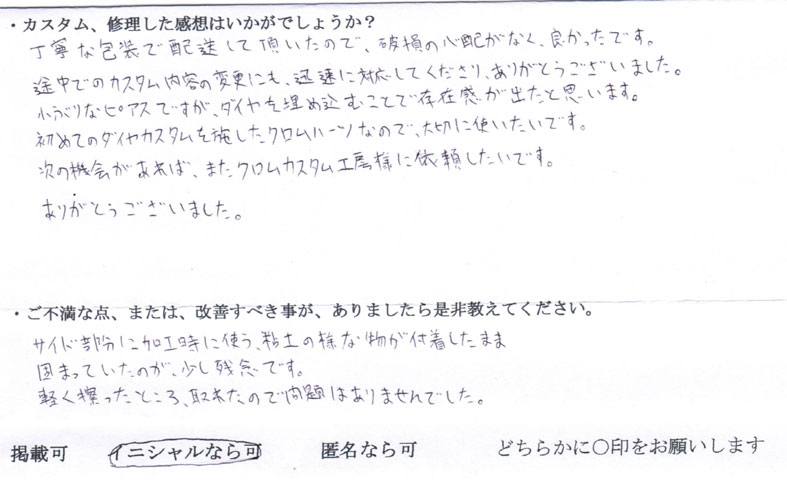 ・カスタム、修理した感想はいかがでしょうか？
丁寧な包装で配送して頂いたので、破損の心配がなく、良かったです。
途中でのカスタム内容の変更にも、迅速に対応してくださり、ありがとうございました。
小ぶりなピアスですが、ダイヤを埋め込むことで存在感が出たと思います。
初めてのダイヤカスタムを施したクロムハーツなので、大切に使いたいです。
次の機会があれば、またクロムカスタム工房様に依頼したいです。
ありがとうございました。
・ご不満な点、または、改善すべき事が、ありましたら是非教えてください。
サイド部分に加工時に使う、粘土の様な物が付着したまま
固まっていたのが、少し残念です。
軽く擦ったところ、取れたので問題はありませんでした。
掲載可　イニシャルなら可　匿名なら可　どちらかに○印をお願いします